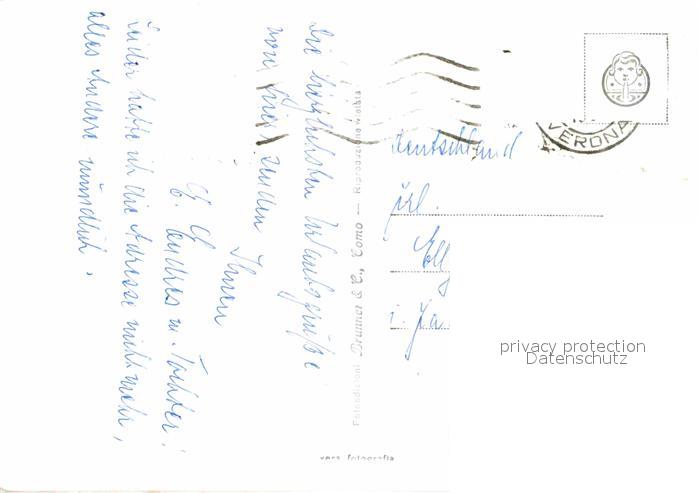 Die herzlichsten Urlaubsgrüße
von hier senden
Ihnen
E. Endres u. Tochter!
Leider hatte ich die Adresse nicht mehr,
alles Andere mündlich.
Fotoedizioni Brunner & C., Como — Riproduzione vietata
vera fotografia
VERONA
Deutschland
Frl.
Ell
i.
privacy protection
Datenschutz